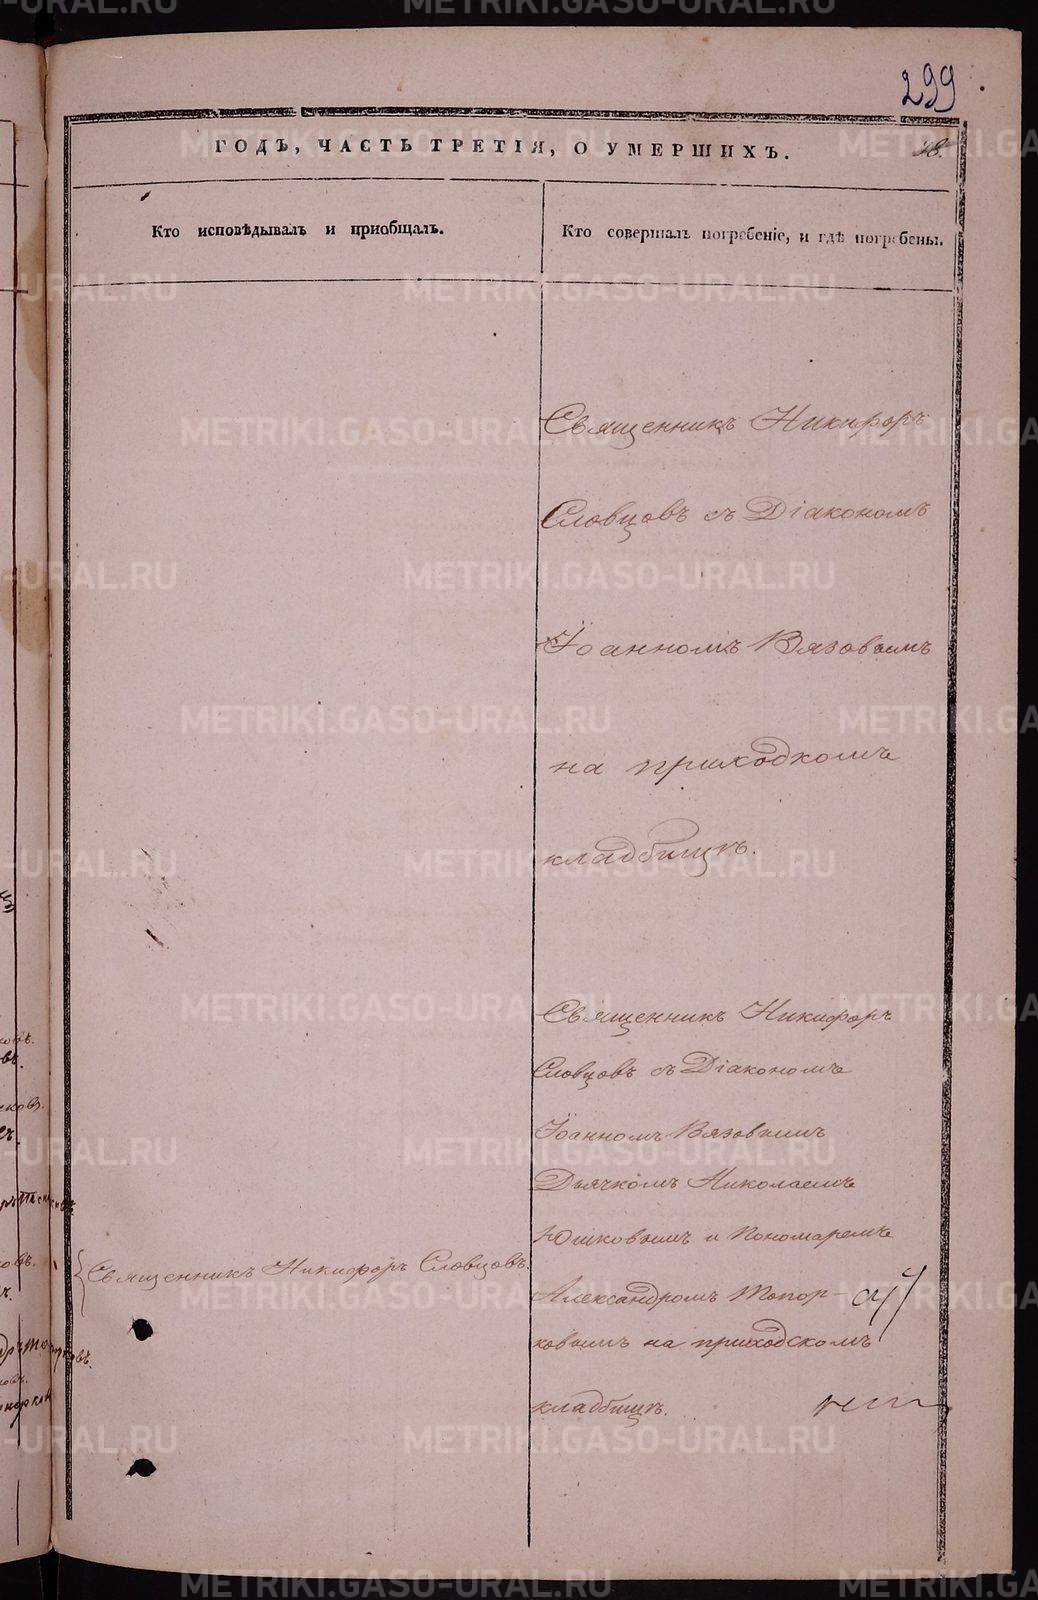 299
ГОДЪ, ЧАСТЬ ТРЕТІЯ, О УМЕРШИХЪ.
Кто исповѣдывалъ и пріобщалъ.
Кто совершалъ погребеніе, и гдѣ погребены.
Священникъ Никифоръ
Словцовъ съ Діакономъ
Іоанномъ Вязовымъ
на приходкомъ
кладбищѣ.
Священникъ Никифоръ
Словцовъ съ Діакономъ
Іоанномъ Вязовымъ
Дьячкомъ Николаемъ
Юшковымъ и Пономаремъ
Священникъ Никифоръ Словцовъ.
Александромъ Топор-
ковымъ на приходскомъ
кладбищѣ.
METRIKI.GASO-URAL.RU